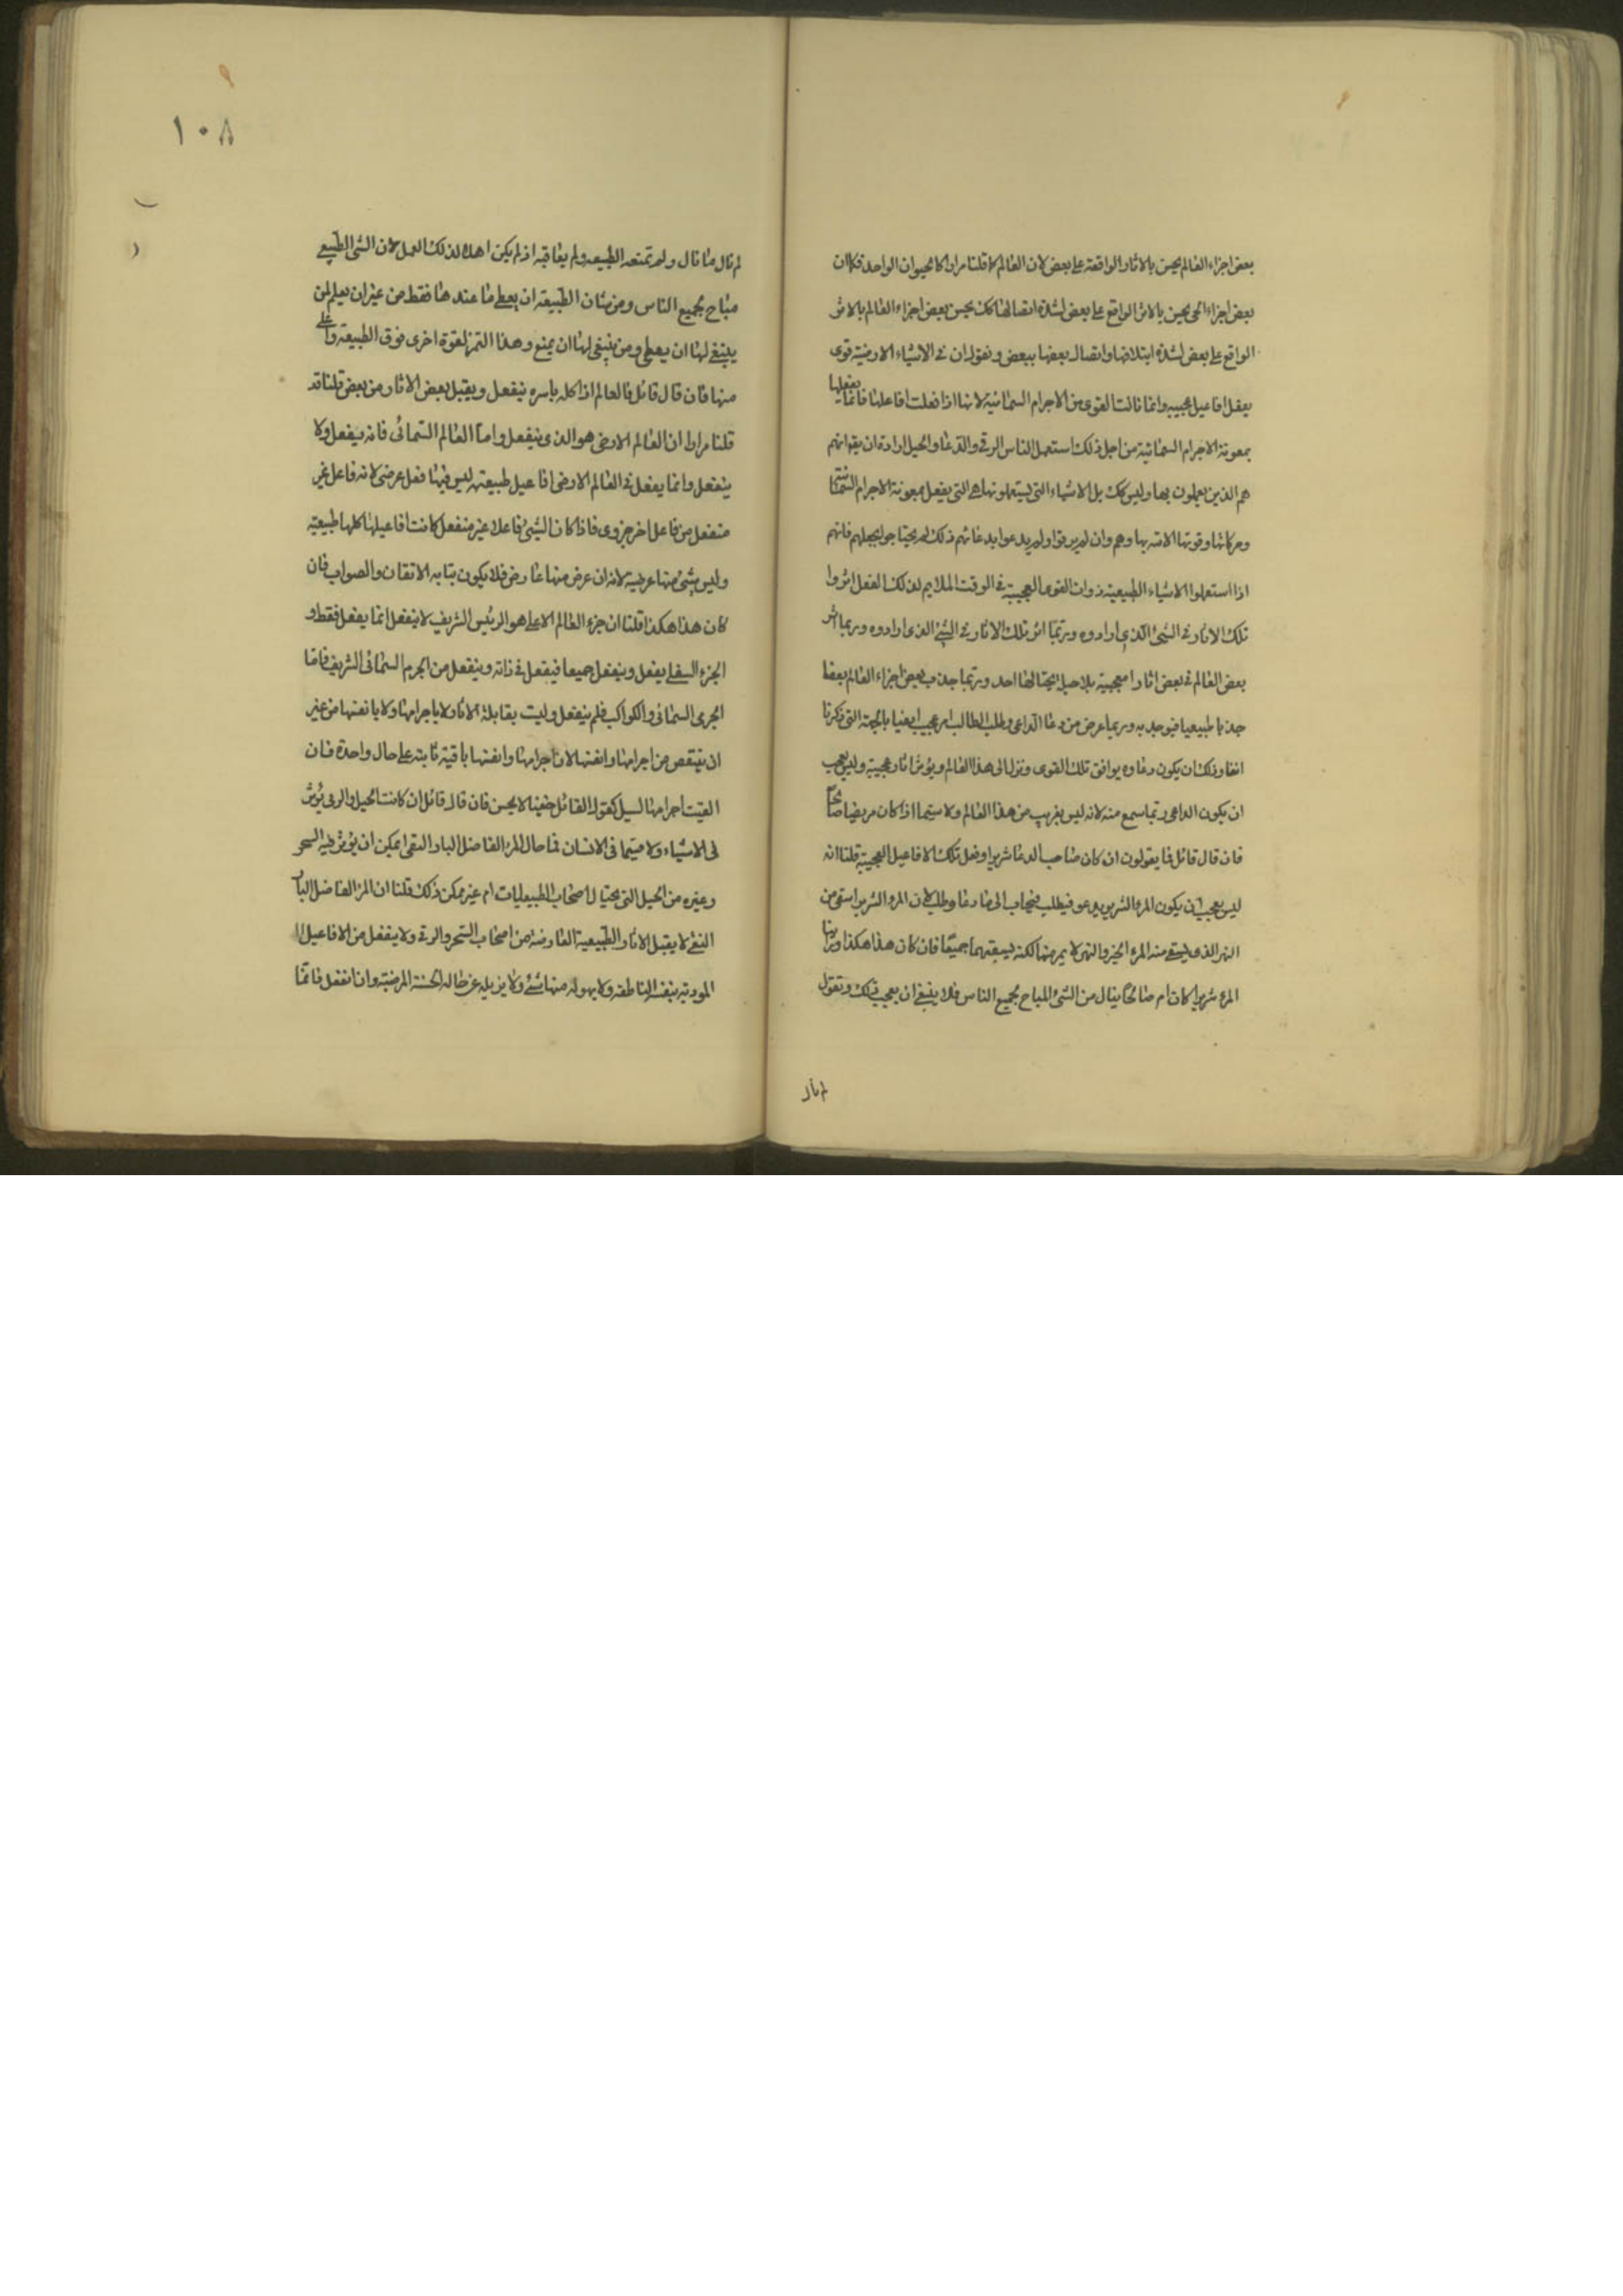 بعض اجزاء العالم يحس بالاثار الواقعة على بعض لان العالم كما قلنا مرارا كالحيوان الواحد فكما ان
بعض اجزاء الحى يحس بالاثر الواقع على بعض لشدة اتصالها كك يحس بعض اجزاء العالم بالاثر
الواقع على بعض لشدة ايتلافها واتصال بعضها ببعض ونقول ان فى الاشياء الارضية قوى
يفعل افاعيل عجيبه وانما نالت القوى من الاجرام السمائية لانها اذا فعلت افاعيلها فانما يفعلها
بمعونة الاجرام السمائية من اجل ذلك استعمل الناس الرقى والدعا والحيل ارادة ان يقوا انهم
هم الذين يعملون بها وليس كك بل الاشياء التى يستعلونها هى التى يفعل بمعونة الاجرام السمائية
وحركاتها وقوتها الاتيه بها وهم وان لم يرقوا ولم يدعوا بدعائهم ذلك لم يحتاجوا لحيلهم فانهم
اذا استعملوا الاشياء الطبيعية ذوات القوى العجيبة فى الوقت الملايم لذلك الفعل اثروا
تلك الاثار فى الشئ الذى ارادوه وربما اثر تلك الاثار فى الشئ الذى ارادوه وربما اثر
بعض العالم فى بعض اثارا عجيبة بلا حيل يحتالها احد وربما جذب بعض اجزاء العالم بعضا
جذبا طبيعيا فيوحد به وربما عرض من دعا الداعى وطلب الطالب امر عجيب ايضا بالجهة التى ذكرنا
انفا وذلك ان يكون دعاوه يوافق تلك القوى وتزل الى هذا العالم ويؤثر اثار عجيبة وليس بعجب
ان يكون الداعى ربما سمع منه لانه ليس بغريب من هذا العالم ولا سيما اذا كان مرضيا صالحا
فان قال قائل فما يقولون ان كان صاحب الدعا شريرا وفعل تلك الافاعيل العجيبة قلنا انه
ليس بعجب ان يكون المرء الشرير يدعو فيطلب فيجاب الى ما دعا وطلب لان المرء الشرير استقى من
النهر الذى يستقى منه المرء الخير والنهر لا يميز منها لكنه يسقيهما جميعا فان كان هذا هكذا وراينا
المرء شريرا كان ام صالحا ينال من الشئ المباح لجميع الناس فلا ينبغى ان يعجب ذلك ونقول
لم نال
١٠٨
لم نال ما نال ولم تمنعه الطبيعه ولم يعاقبه اذ لم يكن اهلا لذلك العمل لان الشى الطبيعى
مباح لجميع الناس ومن شان الطبيعة ان يعطى ما عندها فقط من غير ان يعلم لمن
ينبغى لها ان يعطى ومن ينبغى لها ان يمنع وهذا التميز لقوة اخرى فوق الطبيعة واعلى
منها فان قال قائل فالعالم اذا كله باسره ينفعل ويقبل بعض الاثار من بعض قلنا قد
قلنا مرارا ان العالم الارضى هو الذى ينفعل واما العالم السمائى فانه يفعل ولا
ينفعل وانما يفعل فى العالم الارضى افاعيل طبيعته ليس فيها فعل عرضى لانه فاعل غير
منفعل من فاعل اخر جزوى فاذا كان الشئ فاعلا غير منفعل كانت افاعيلها كلها طبيعية
وليس بشئ منها عرضية لانه ان عرض منها عارض فلا يكون بتا به الاتقان والصواب فان
كان هذا هكذا قلنا ان جزء العالم الاعلى هو الرئيس الشريف لا ينفعل انما يفعل فقط و
الجزء السفلى يفعل وينفعل جميعا فيفعل فى ذاته وينفعل من الجرم السمائى الشريف فاما
الجرى السمائى والكواكب فلم ينفعل وليت بقابلة الاثار لا باجرامها ولا بانفسها من غير
ان ينتقص من اجرامها وانفسها لان اجرامها وانفسها باقية ثابته على حال واحدة فان
القيت اجرامها لسيل كقول القائل خفينا لا يحس فان قال قائل ان كانت الحيل والرقى يؤثر
فى الاشياء ولا سيما فى الانسان فما حال المرء الفاضل البار التقى ايمكن ان يؤثر فيه السحر
وغيره من الحيل التى يحتال اصحاب الطبيعيات ام غير ممكن ذلك قلنا ان المرء الفاضل البار
التقى لا يقبل الاثار الطبيعية العارضة من اصحاب السحر والرقى ولا ينفعل من الافاعيل ا
المودية بنفسه الناطقه ولا يهوله منها شئ ولا يزيله عن حاله الحسنة المرضية وان انفعل فانما